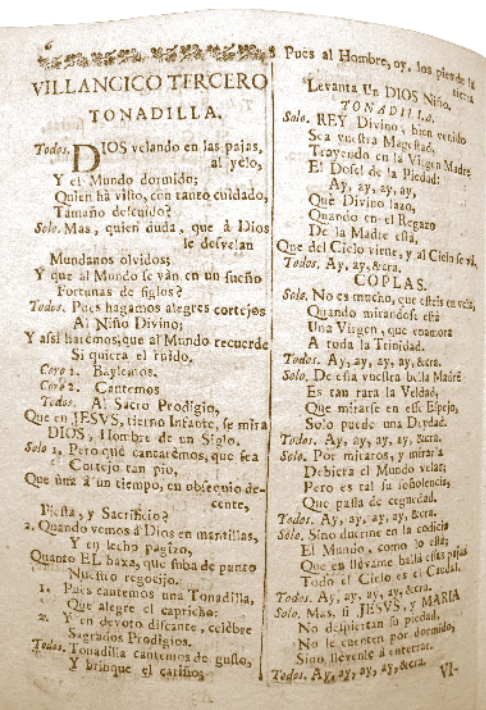 6
VILLANCICO TERCERO
TONADILLA.
Todos. DIOS velando en las pajas,
al yelo,
Y el Mundo dormido;
Quien hà visto, con tanto cuidado,
Tamaño descuido?
Solo. Mas, quien duda, que à Dios
le desvelan
Mundanos olvidos;
Y que al Mundo se ván en un sueño
Fortunas de siglos?
Todos. Pues hagamos alegres cortejos
Al Niño Divino;
Y assi harèmos, que al Mundo recuerde
Si quiera el ruido.
Coro 1. Baylemos.
Coro 2. Cantemos
Todos. Al Sacro Prodigio,
Que en JESVS, tierno Infante, se mira
DIOS, Hombre de un Siglo.
Solo 1. Pero què cantarèmos, que sea
Cortejo tan pio,
Que una à un tiempo, en obsequio de-
cente,
Fiesta, y Sacrificio?
2. Quando vemos à Dios en mantillas,
Y en lecho pagizo,
Quanto EL baxa, que suba de punto
Nuestro regocijo.
1. Pues cantemos una Tonadilla,
Que alegre el capricho:
2. Y en devoto discante, celèbre
Sagrados Prodigios.
Todos. Tonadilla cantemos de gusto,
Y brinque el cariños
Pues al Hombre, oy, los pies de la
tierra
Levanta un DIOS Niño.
TONADILLA.
Solo. REY Divino, bien venido
Sea vuestra Magestad,
Trayendo en la Virgen Madre
El Dosel de la Piedad:
Ay, ay, ay, ay,
Què Divino lazo,
Quando en el Regazo
De la Madre està,
Que del Cielo viene, y al Cielo se và.
Todos. Ay, ay, &cra.
COPLAS.
Solo. No es mucho, que esteis en vela,
Quando mirandose està
Una Virgen, que enamora
A toda la Trinidad.
Todos. Ay, ay, ay, ay, &cra.
Solo. De essa vuestra bella Madre
Es tan rara la Veldad,
Que mirarse en esse Espejo,
Solo puede una Deydad.
Todos. Ay, ay, ay, ay, &cra.
Solo. Por miraros, y mirarla
Debiera el Mundo velar;
Pero es tal su soñolencia,
Que passa de ceguedad.
Todos. Ay, ay, ay, ay, &cra.
Solo. Sino duerme en la codicia
El Mundo, como lo està;
Que en llevarme hallà essas pajas
Todo el Cielo es el Caudal.
Todos. Ay, ay, ay, ay, &cra.
Solo. Mas, si JESVS, y MARIA
No despiertan su piedad,
No le cuenten por dormido,
Sino llevenle à enterrar.
Todos. Ay, ay, ay, ay, &cra.
VI-